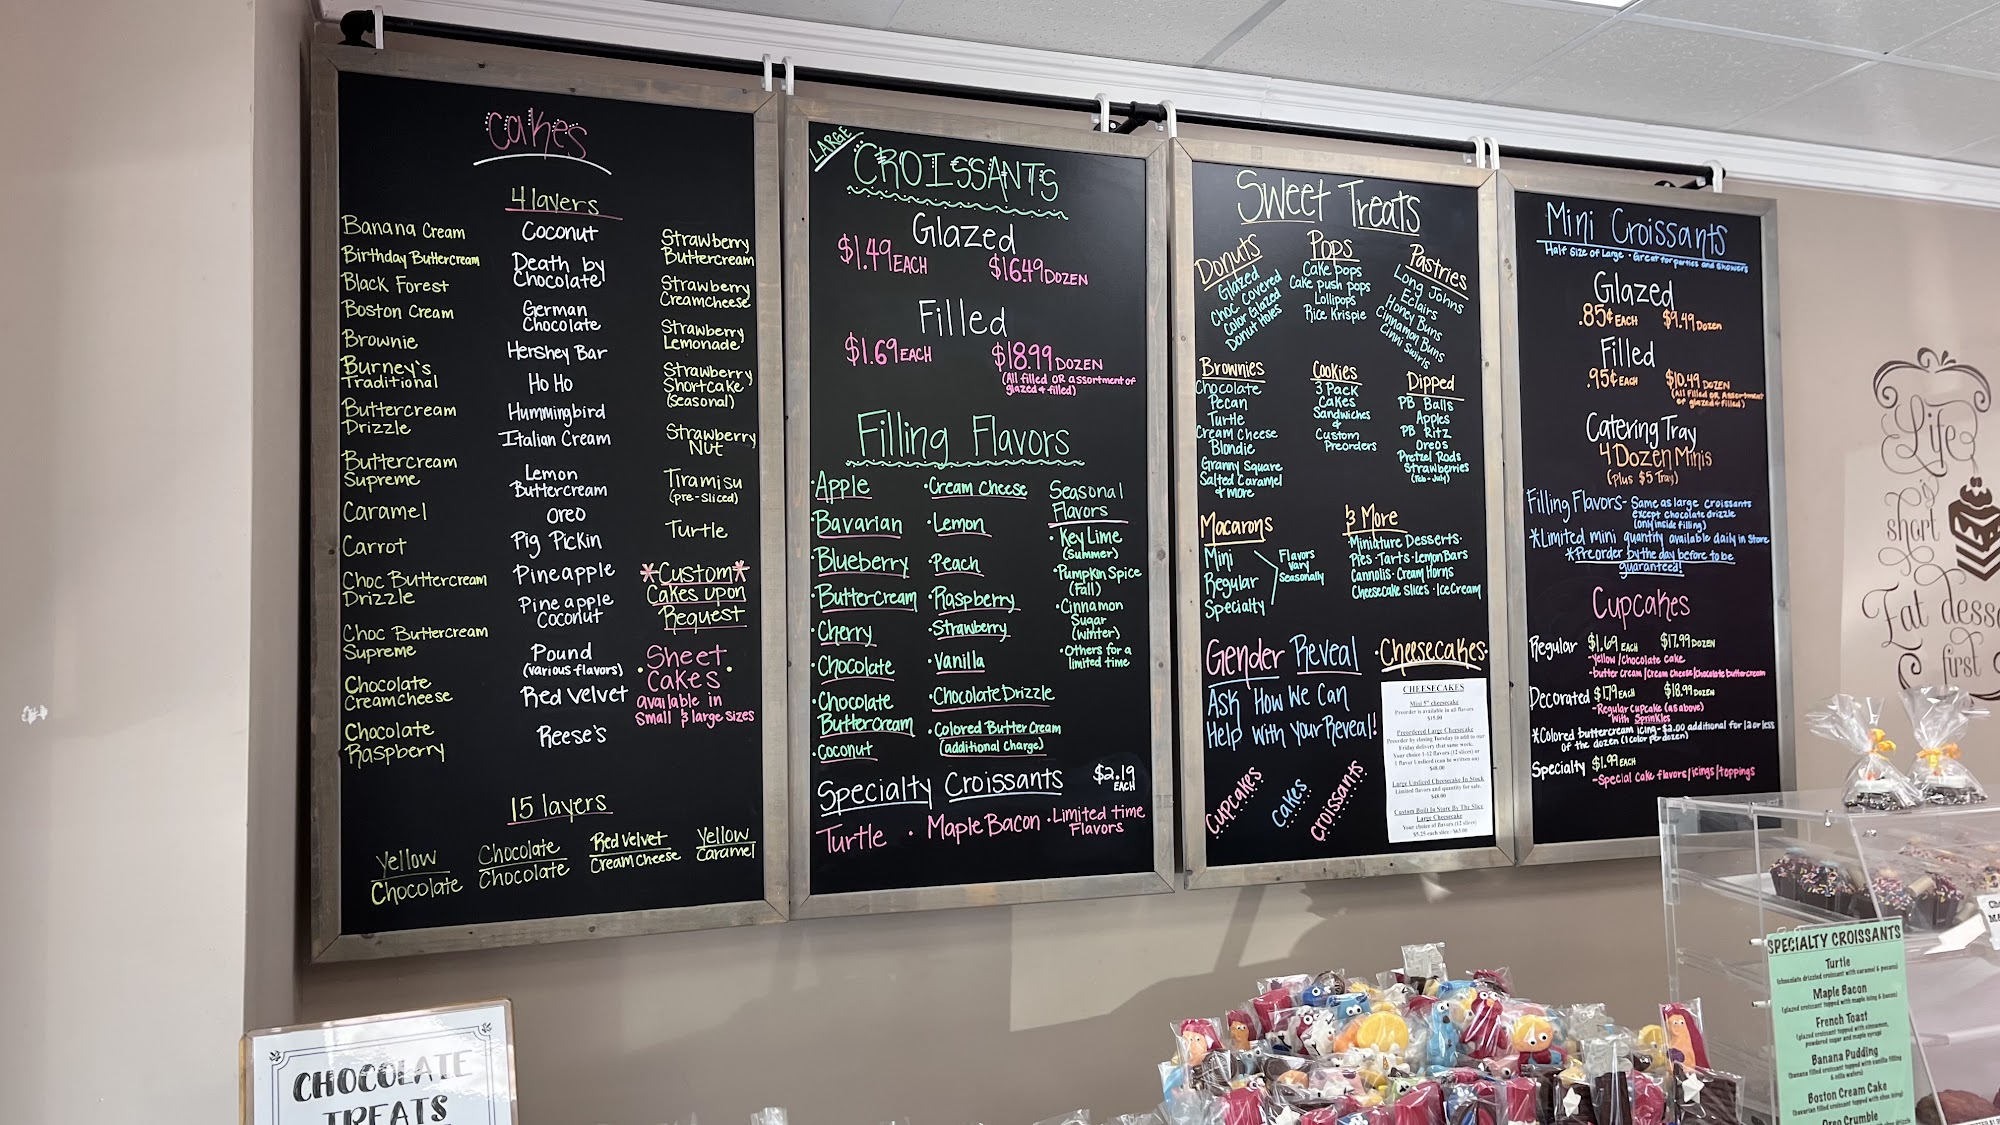 Cakes
4 layers
Banana Cream
Birthday Buttercream
Black Forest
Boston Cream
Brownie
Burney's
Traditional
Buttercream
Drizzle
Buttercream
Supreme
Caramel
Carrot
Choc Buttercream
Drizzle
Choc Buttercream
Supreme
Chocolate
Creamcheese
Chocolate
Raspberry
Coconut
Death by
Chocolate
German
Chocolate
Hershey Bar
Ho Ho
Hummingbird
Italian Cream
Lemon
Buttercream
Oreo
Pig Pickin
Pineapple
Pineapple
Coconut
Pound
(various flavors)
Red Velvet
Reese's
Strawberry
Buttercream
Strawberry
Creamcheese
Strawberry
Lemonade
Strawberry
Shortcake
(Seasonal)
Strawberry
Nut
Tiramisu
(pre-sliced)
Turtle
*Custom*
Cakes upon
Request
·Sheet·
Cakes
available in
Small & large sizes
15 layers
Yellow
Chocolate
Chocolate
Chocolate
Red Velvet
Cream Cheese
Yellow
Caramel
LARGE
CROISSANTS
Glazed
$1.49 EACH $16.49 DOZEN
Filled
$1.69 EACH $18.99 DOZEN
(All filled OR assortment of
glazed + filled)
Filling Flavors
·Apple
·Bavarian
·Blueberry
·Buttercream
·Cherry
·Chocolate
·Chocolate
Buttercream
·Coconut
·Cream Cheese
·Lemon
·Peach
·Raspberry
·Strawberry
·Vanilla
·Chocolate Drizzle
·Colored Butter Cream
(additional charge)
Seasonal
Flavors
·Key Lime
(Summer)
·Pumpkin Spice
(Fall)
·Cinnamon
Sugar
(Winter)
·Others for a
limited time
Specialty Croissants $2.19
EACH
Turtle · Maple Bacon ·Limited time
Flavors
Sweet Treats
Donuts
Glazed
Choc Covered
Color Glazed
Donut Holes
Pops
Cake pops
Cake push pops
Lollipops
Rice Krispie
Pastries
Long Johns
Eclairs
Honey Buns
Cinnamon Buns
Cinni Swirls
Brownies
Chocolate
Pecan
Turtle
Cream Cheese
Blondie
Granny Square
Salted Caramel
& more
Cookies
3 Pack
Cakes
Sandwiches
&
Custom
Preorders
Dipped
PB Balls
Apples
PB Ritz
Oreos
Pretzel Rods
Strawberries
(Feb-July)
Macarons
Mini
Regular
Specialty
Flavors
Vary
Seasonally
& More
Miniature Desserts·
Pies·Tarts·Lemon Bars
Cannolis·Cream Horns
Cheesecake Slices·Ice Cream
Gender Reveal
Ask How We Can
Help With Your Reveal!
Cupcakes
Cakes
Croissants
·Cheesecakes·
CHEESECAKES
Mini 5" cheesecake
Preorder is available in all flavors
$15.00
Preordered Large Cheesecake
Preorder by closing Tuesday to add to our
Friday delivery that same week.
Your choice 1-12 flavors (12 slices) or
1 flavor unsliced (can be written on)
Large Unsliced Cheesecake In Stock
Limited flavors and quantity for sale.
Custom Built In Store By The Slice
Large Cheesecake
Your choice of flavors (12 slices)
$5.25 each slice / $63.00
Mini Croissants
Half Size of Large · Great for parties and showers
Glazed
.85¢ EACH $9.49 Dozen
Filled
.95¢ EACH $10.49 DOZEN
(All Filled OR Assortment
of glazed + filled)
Catering Tray
4 Dozen Minis
(Plus $5 Tray)
Filling Flavors- Same as large croissants
except chocolate drizzle
(only inside filling)
*Limited mini quantity available daily in store
*Preorder by the day before to be
guaranteed!
Cupcakes
Regular $1.69 EACH $17.99 DOZEN
-Yellow/chocolate cake
-butter cream/cream cheese/chocolate buttercream
Decorated $1.79 EACH $18.99 DOZEN
-Regular cupcake (as above)
with Sprinkles
*Colored buttercream icing-$2.00 additional for 12 or less
of the dozen (1 color per dozen)
Specialty $1.99 EACH
-Special cake flavors/icings/toppings
Life
is
short
Eat
first
CHOCOLATE
TREATS
SPECIALTY CROISSANTS
Turtle
(chocolate drizzled croissant with caramel & pecans)
Maple Bacon
(glazed croissant topped with maple icing & bacon)
French Toast
(glazed croissant topped with cinnamon,
powdered sugar and maple syrup)
Banana Pudding
(banana filled croissant topped with vanilla filling
& nilla wafers)
Boston Cream Cake
(bavarian filled croissant topped with choc icing)
Oreo Crumble